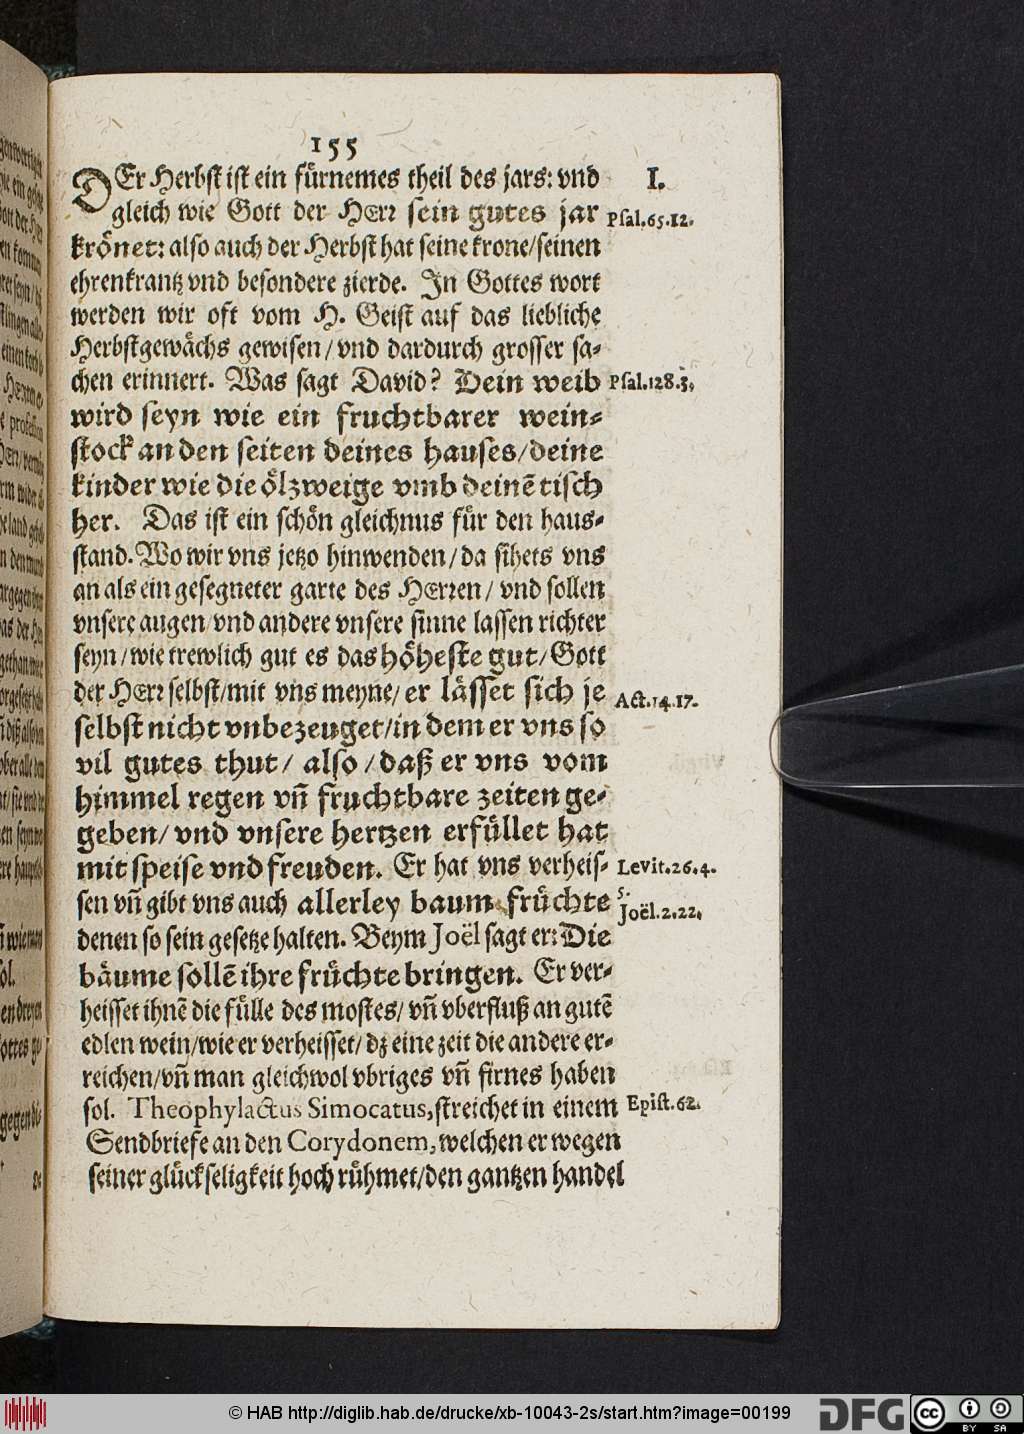 155
DEr Herbst ist ein fürnemes theil des jars: vnd
I.
gleich wie Gott der HErr sein gutes jar
Psal.65.12.
krönet: also auch der Herbst hat seine krone/seinen
ehrenkrantz vnd besondere zierde. In Gottes wort
werden wir oft vom H. Geist auf das liebliche
Herbstgewächs gewisen/ vnd dardurch grosser sa-
chen erinnert. Was sagt David? Dein weib
Psal.128.3.
wird seyn wie ein fruchtbarer wein-
stock an den seiten deines hauses/deine
kinder wie die ölzweige vmb deinē tisch
her. Das ist ein schön gleichnus für den haus-
stand. Wo wir vns jetzo hinwenden/da sihets vns
an als ein gesegneter garte des HErren/ vnd sollen
vnsere augen/vnd andere vnsere sinne lassen richter
seyn/wie trewlich gut es das höheste gut/Gott
der HErr selbst/mit vns meyne/er lässet sich je
Act.14.17.
selbst nicht vnbezeuget/in dem er vns so
vil gutes thut/ also/daß er vns vom
himmel regen vn̄ fruchtbare zeiten ge-
geben/ vnd vnsere hertzen erfüllet hat
mit speise vnd freuden. Er hat vns verheis-
Levit.26.4.
sen vn̄ gibt vns auch allerley baum früchte
5.
Joël.2.22.
denen so sein gesetze halten. Beym Joël sagt er: Die
bäume sollē ihre früchte bringen. Er ver-
heisset ihnē die fülle des mostes/ vn̄ vberfluß an gutē
edlen wein/wie er verheisset/dz eine zeit die andere er-
reichen/vn̄ man gleichwol vbriges vn̄ firnes haben
sol. Theophylactus Simocatus,streichet in einem
Epist.62.
Sendbriefe an den Corydonem,welchen er wegen
seiner glückseligkeit hoch rühmet/den gantzen handel
© HAB http://diglib.hab.de/drucke/xb-10043-2s/start.htm?image=00199
DFG
cc
BY SA